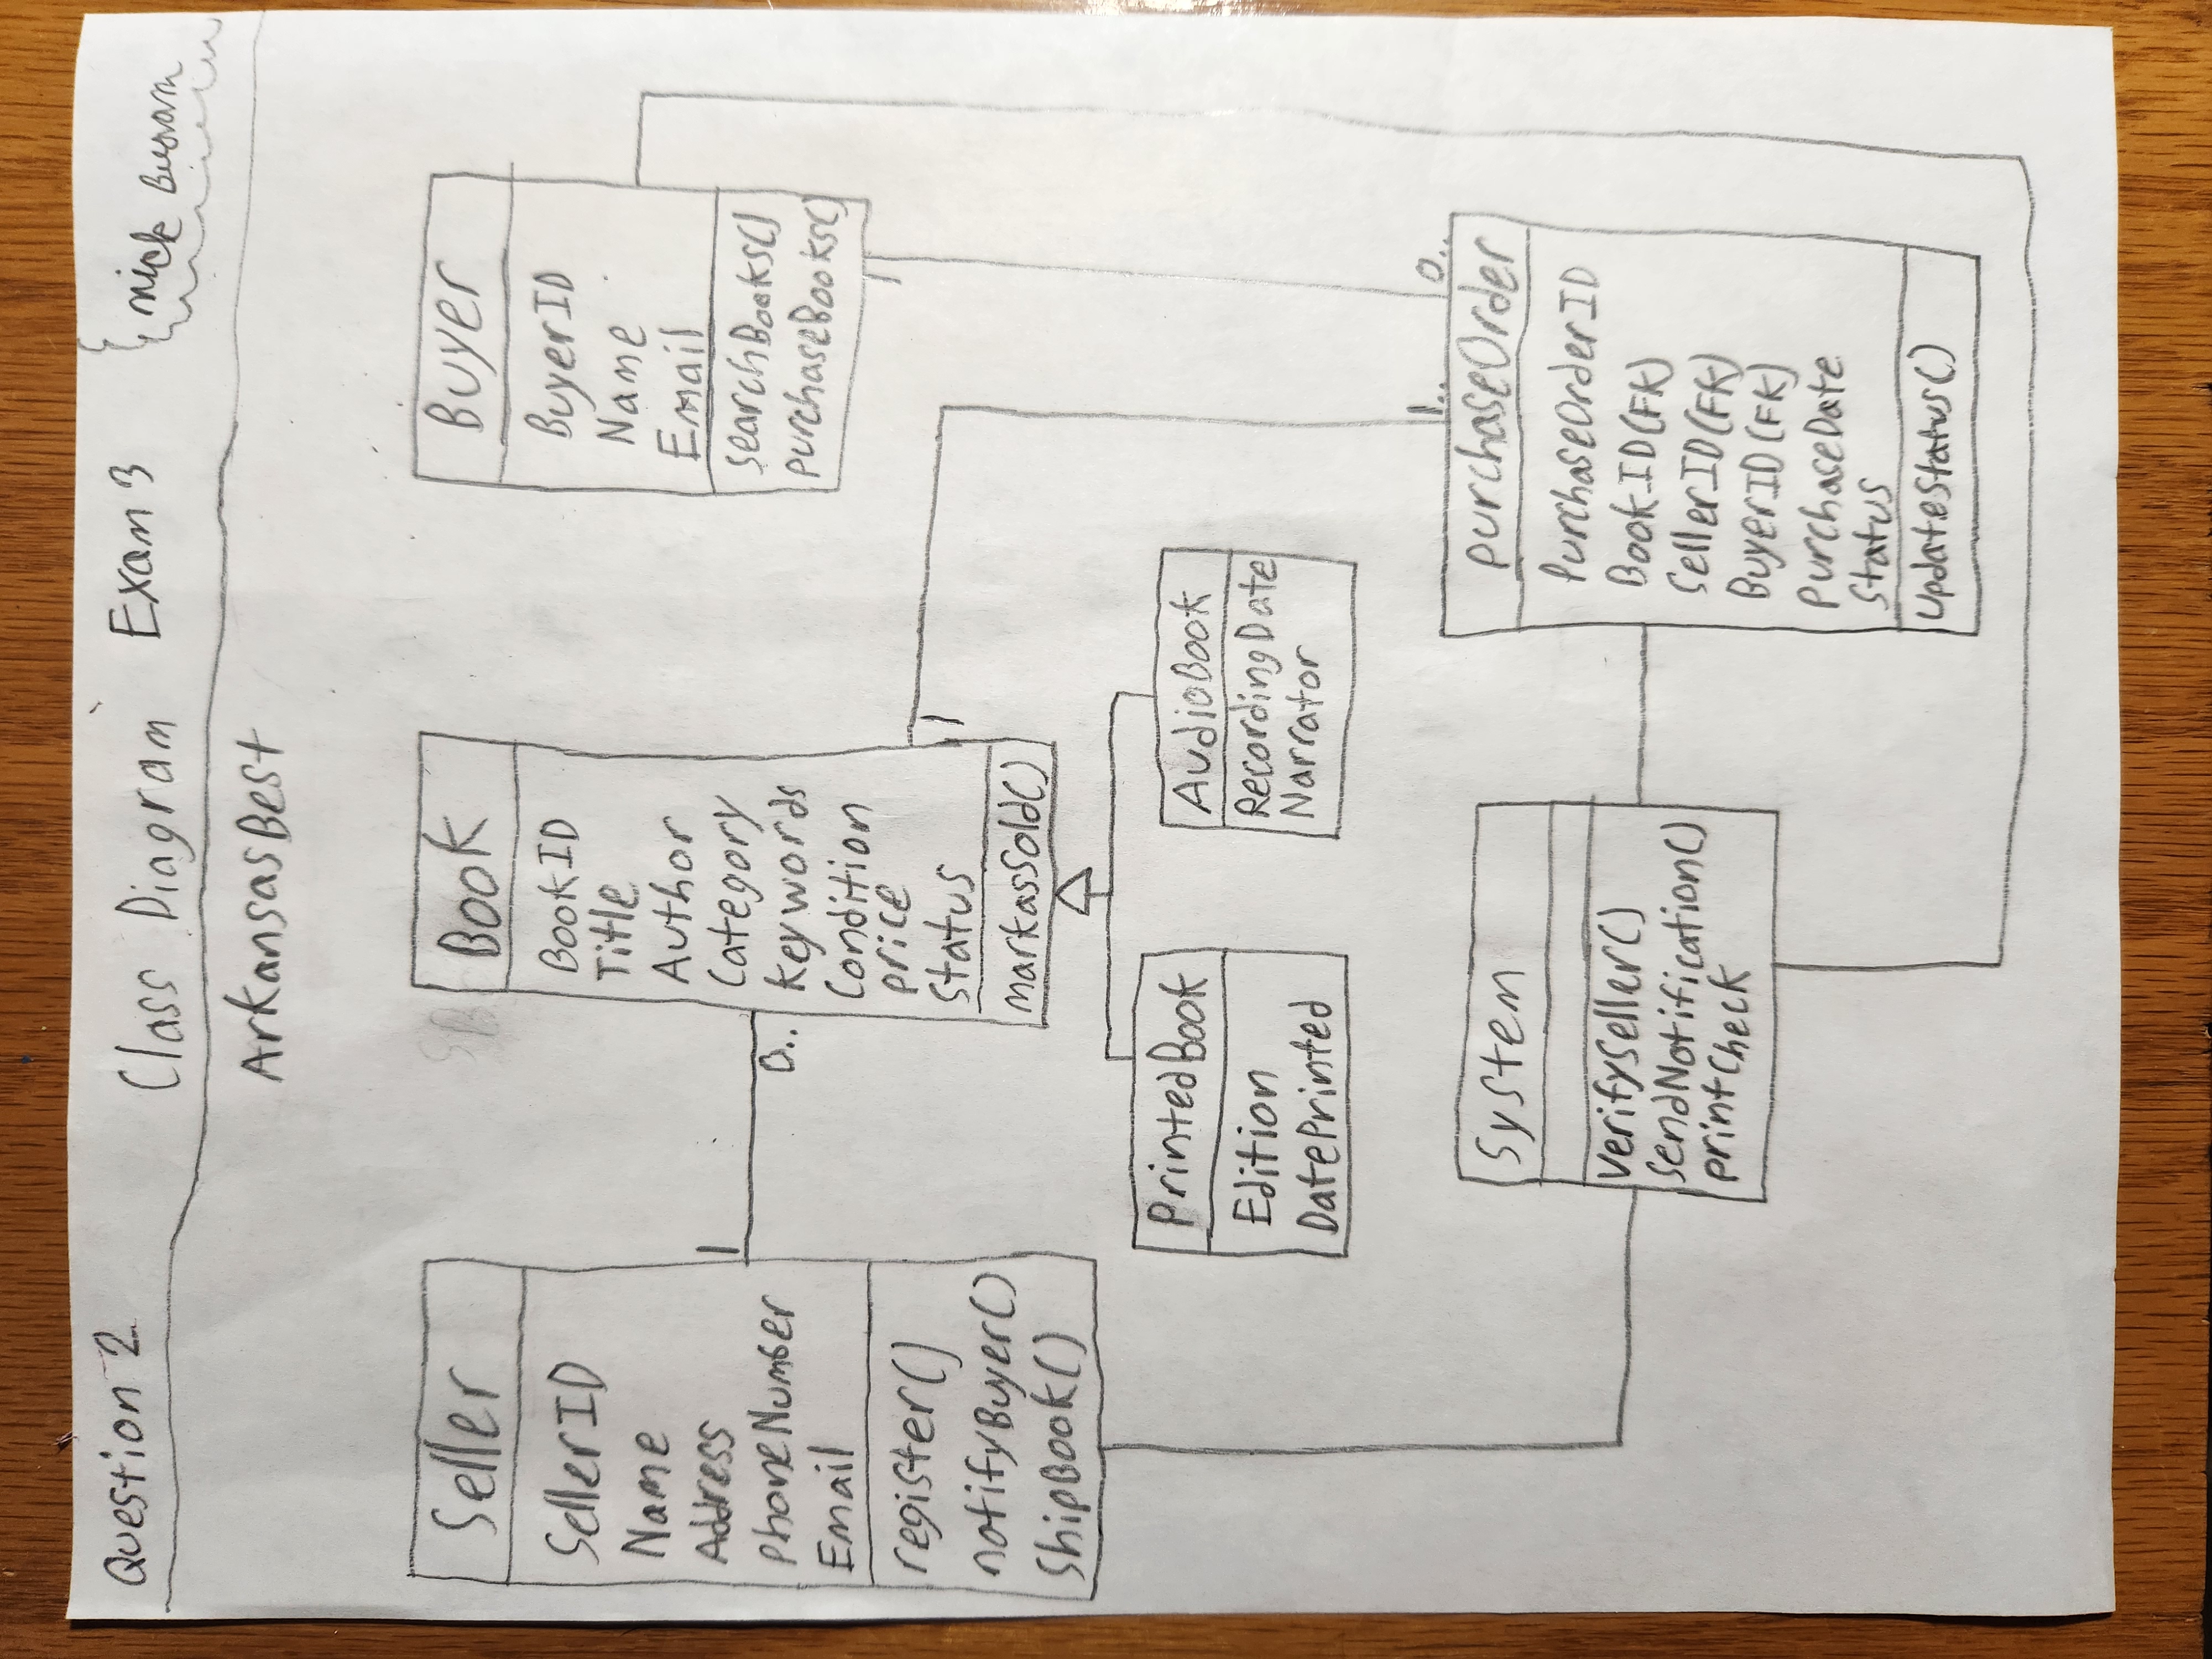 Question 2
Class Diagram
Exam 3
nick
ArkansasBest
Seller
SellerID
Name
Address
phoneNumber
Email
register()
notifyBuyer()
ShipBook()
1
0..
Book
BookID
Title
Author
Category
keywords
Condition
price
Status
markasSold()
1
Buyer
BuyerID
Name
Email
searchBooks()
purchaseBooks()
1
PrintedBook
Edition
DatePrinted
AudioBook
RecordingDate
Narrator
System
verifySeller()
sendNotification()
printCheck
1..
0..
purchaseOrder
PurchaseOrderID
BookID(FK)
SellerID(FK)
BuyerID(FK)
PurchaseDate
Status
updateStatus()